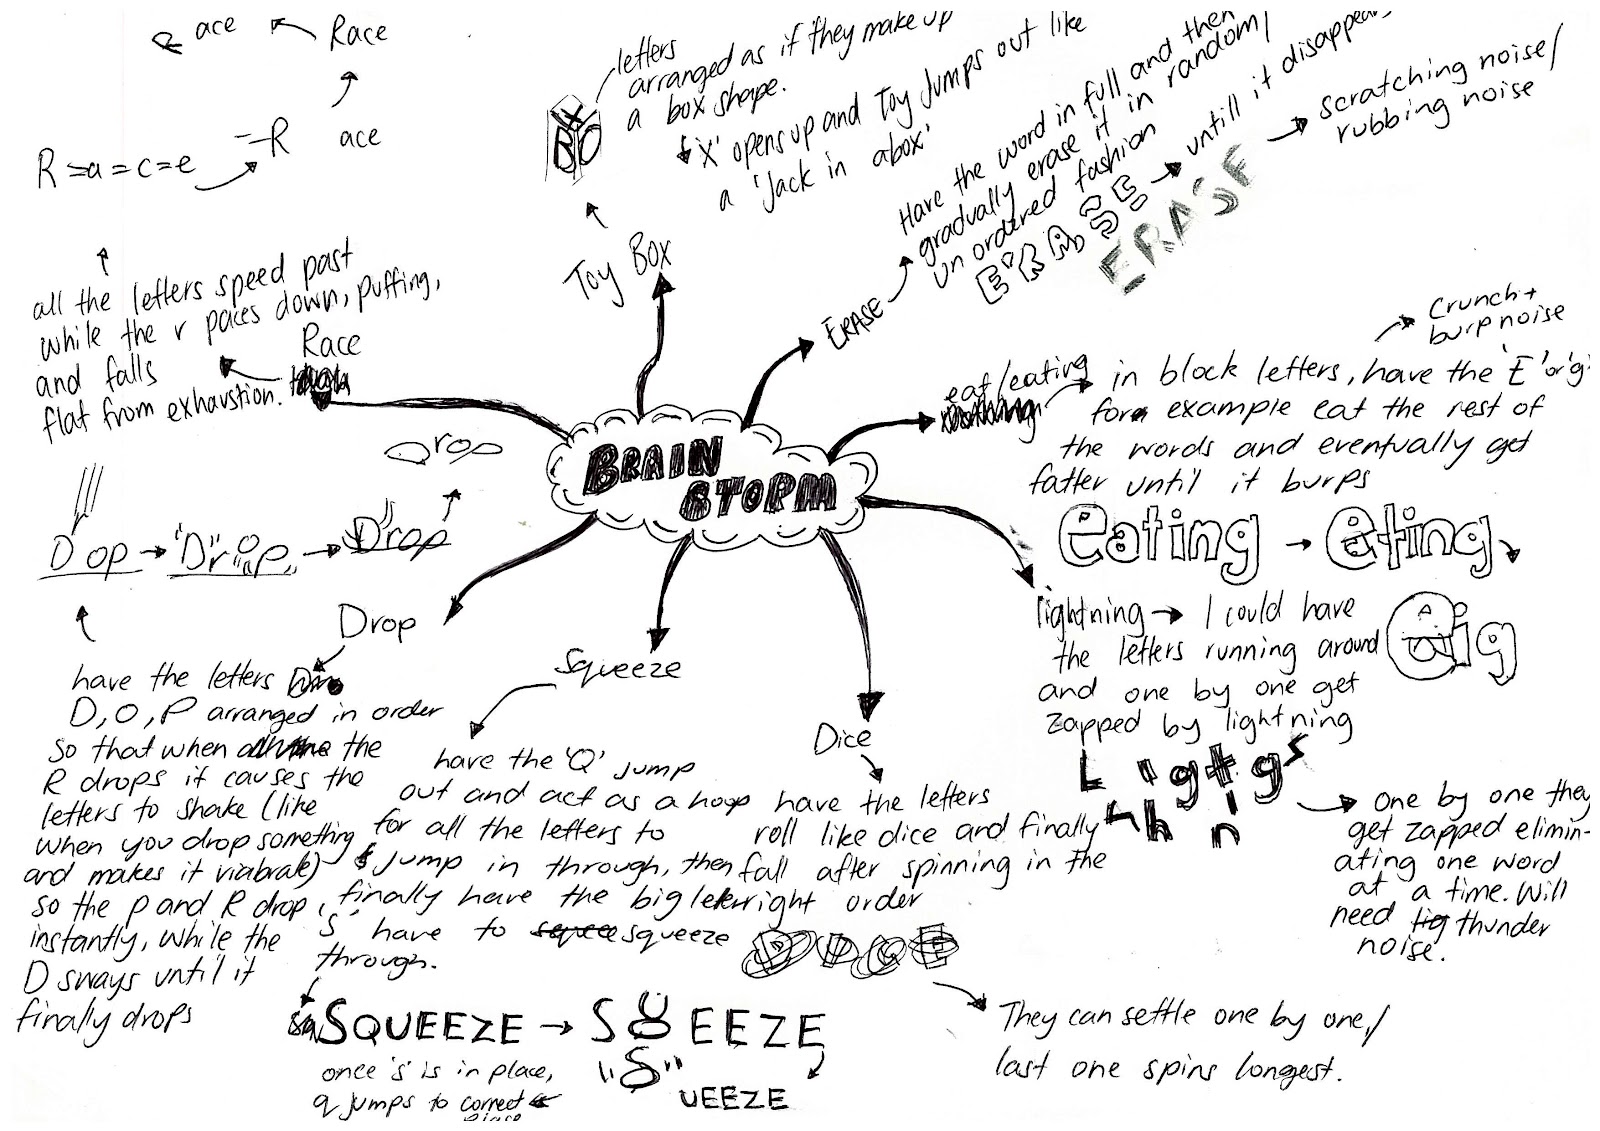 BRAIN
STORM
Race
ace
R=a=c=e
R ace
all the letters speed past
while the r paces down, puffing,
and falls
flat from exhaustion.
Race
Toy Box
BOX
letters
arranged as if they make up
a box shape.
'X' opens up and Toy Jumps out like
a 'Jack in abox'
ERASE
Have the word in full and then
gradually erase it in random/
un ordered fashion
ERASE
untill it disappears
ERASE
Scratching noise/
rubbing noise
eat/eating
in block letters, have the 'E' or 'g'
for example eat the rest of
the words and eventually get
fatter until it burps
Crunch +
burp noise
eating
eting
eig
lightning → I could have
the letters running around
and one by one get
zapped by lightning
one by one they
get zapped elimin-
ating one word
at a time. Will
need thunder
noise.
Dice
have the letters
roll like dice and finally
fall after spinning in the
right order
DICE
They can settle one by one,/
last one spins longest.
Squeeze
have the 'Q' jump
out and act as a hoop
for all the letters to
jump in through, then
finally have the big letter
'S' have to squeeze
through.
SQUEEZE → S EEZE
"S" UEEZE
once 's' is in place,
q jumps to correct
place
Drop
Drop
D op → "Drop" → Drop
have the letters
D, O, P arranged in order
so that when the
R drops it causes the
letters to shake (like
when you drop something
and makes it viabrate)
so the p and R drop
instantly, while the
D sways until it
finally drops